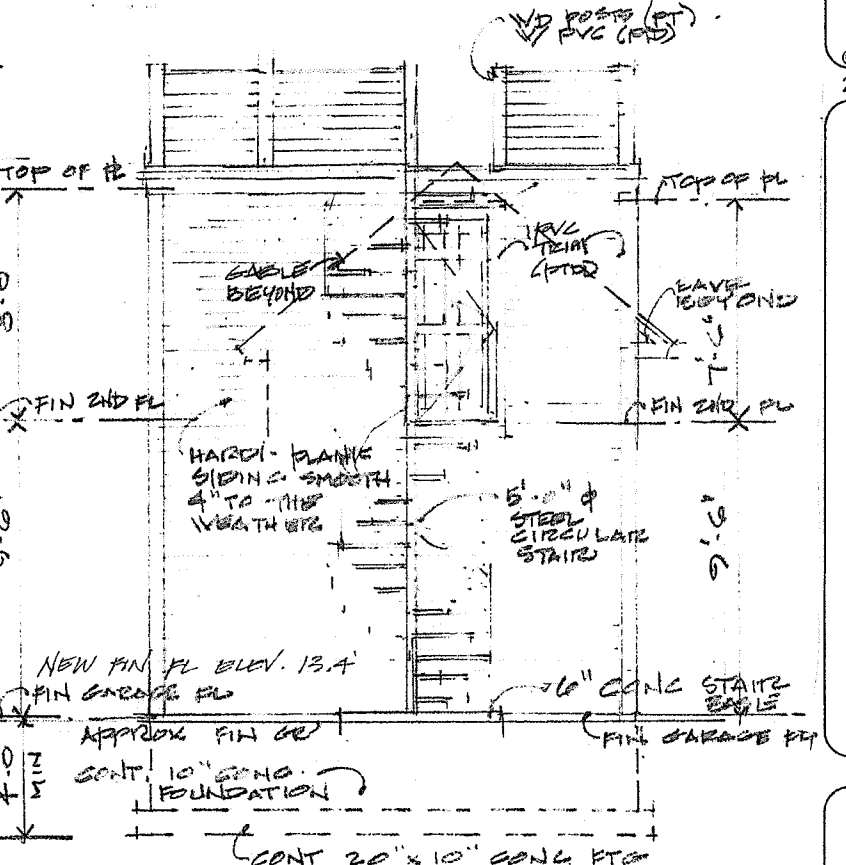 WD POSTS (PT)
W/ PVC (PTD)
TOP OF PL
TOP OF PL
PVC
TRIM
(PTD)
GABLE
BEYOND
EAVE
BEYOND
7'-6"
FIN 2ND FL
FIN 2ND FL
HARDI-PLANK
SIDING SMOOTH
4" TO THE
WEATHER
5'-0" φ
STEEL
CIRCULAR
STAIR
9'-6"
NEW FIN FL ELEV. 13.4'
FIN GARAGE FL
6" CONC STAIR
APPROX FIN GR
FIN GARAGE
MIN
CONT. 10" CONC.
FOUNDATION
CONT 20" x 10" CONC FTG